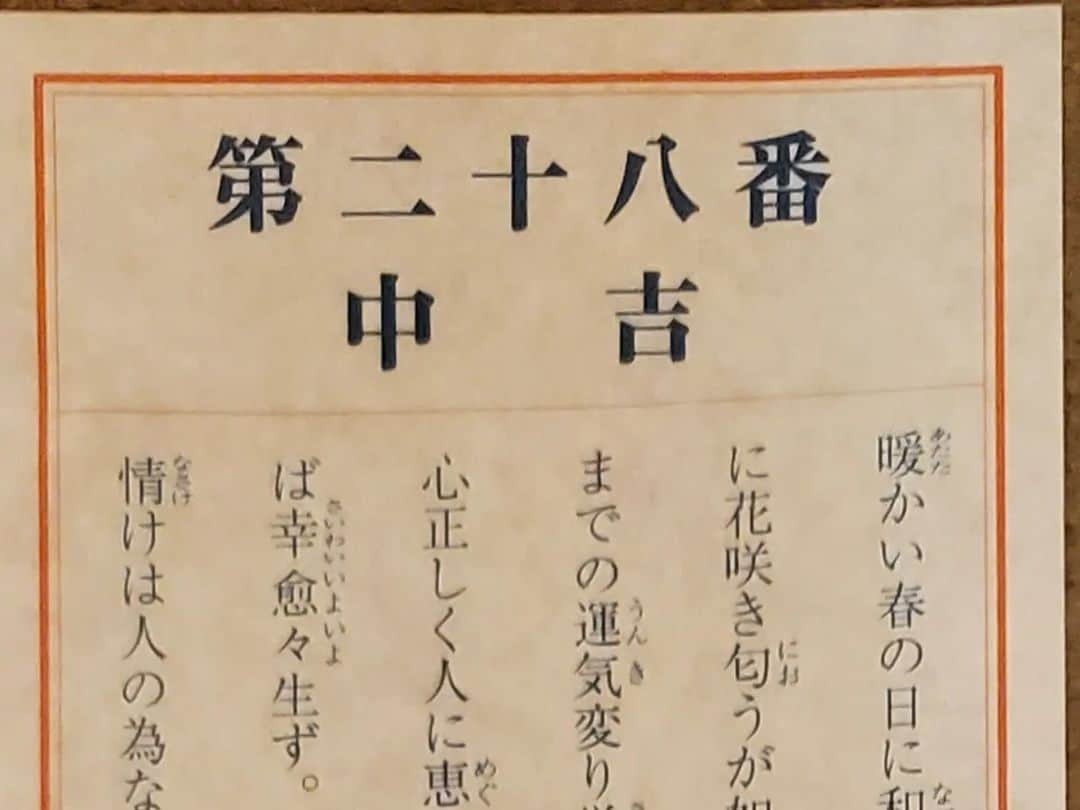 第二十八番
中吉
暖かい春の日に
に花咲き匂うが
までの運気変り
心正しく人に恵
ば幸愈々生ず。
情けは人の為な